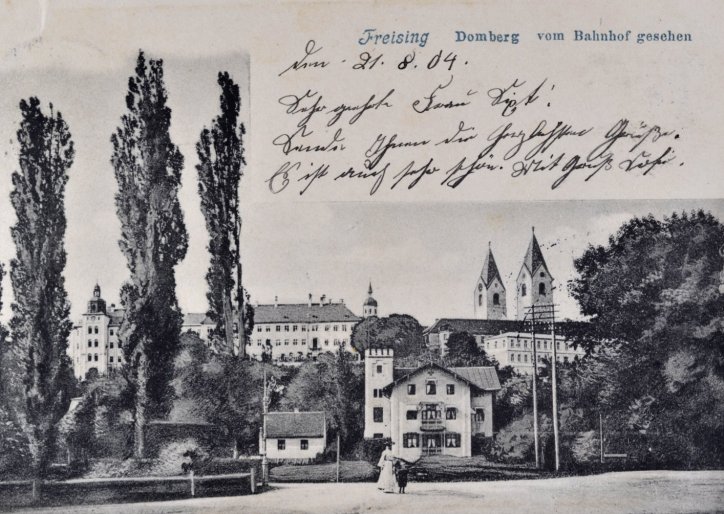 Freising Domberg vom Bahnhof gesehen
den 21.8.04.
Sehr geehrte Frau Sixt!
Sende Ihnen die herzlichsten Grüße.
Es ist auch sehr schön. Mit Gruß